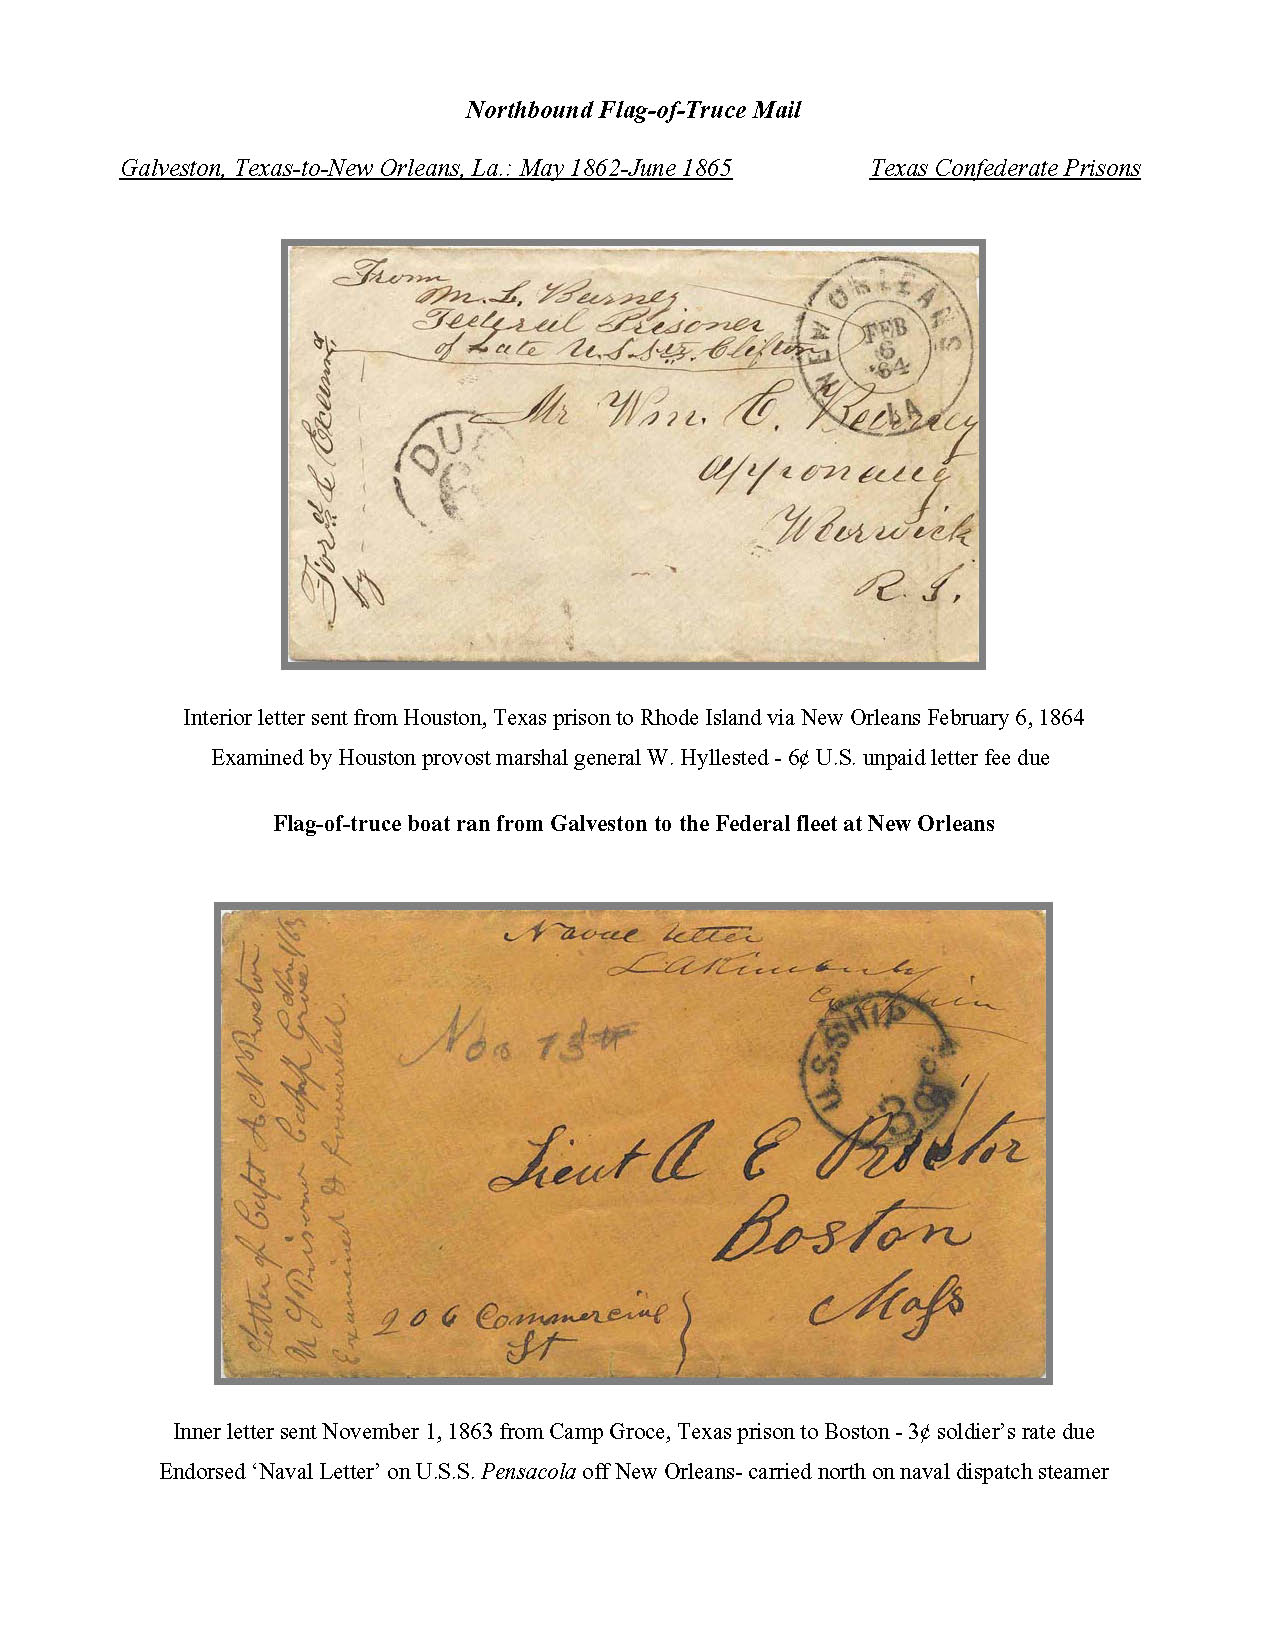 Northbound Flag-of-Truce Mail
Galveston, Texas-to-New Orleans, La.: May 1862-June 1865 Texas Confederate Prisons
From
Wm. L. Burney
Federal Prisoner
of Late U.S. Str. Clifton
NEW ORLEANS LA
FEB
6
'64
DUE
Mr Wm. C. Burney
Apponaug
Warwick
R. I.
by
Interior letter sent from Houston, Texas prison to Rhode Island via New Orleans February 6, 1864
Examined by Houston provost marshal general W. Hyllested - 6¢ U.S. unpaid letter fee due
Flag-of-truce boat ran from Galveston to the Federal fleet at New Orleans
Naval letter
U.S. SHIP
3 cts
Lieut A E Proctor
Boston
Mass
206 Commercial
St
Letter of Capt A N Proctor
U S Prisoner Camp Groce
Examined & forwarded
Inner letter sent November 1, 1863 from Camp Groce, Texas prison to Boston - 3¢ soldier's rate due
Endorsed 'Naval Letter' on U.S.S. Pensacola off New Orleans- carried north on naval dispatch steamer